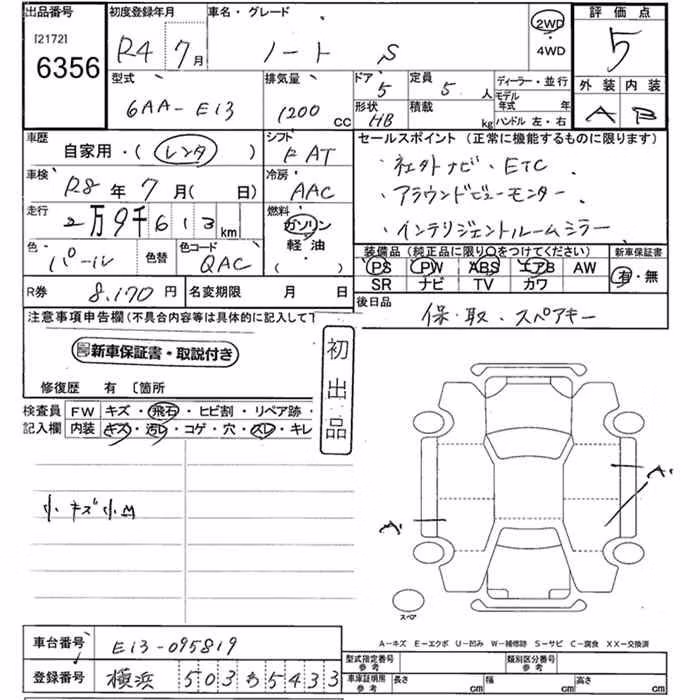 出品番号 [2172] 6356
初度登録年月 R4 7月
車名・グレード ノート S
2WD ・ 4WD
評価点 5
外装 A 内装 B
型式 6AA-E13
排気量 1200 CC
ドア 5
形状 HB
定員 5人
積載 kg
ディーラー・並行
モデル年式 年
ハンドル 左・右
車歴 自家用・(レンタ)
シフト FAT
車検 R8年7月(日)
冷房 AAC
走行 2万9千613km
燃料 ガソリン 軽油 ( ・ )
色 パール 色替
色コード QAC
R券 8,170円
名変期限 月 日
セールスポイント(正常に機能するものに限ります)
・社外ナビ・ETC
・アラウンドビューモニター
・インテリジェントルームミラー
装備品(純正品に限り○をつけてください)
新車保証書 有・無
PS PW ABS エアB AW
SR ナビ TV カワ
後日品 保・取・スペアキー
注意事項申告欄(不具合内容等は具体的に記入して下
新車保証書・取説付き
初出品
修復歴 有 〔箇所
検査員記入欄
FW キズ・飛石・ヒビ割・リペア跡・
内装 キズ・汚レ・コゲ・穴・スレ・キレ
小キズ小凹
A'
A'
スペア
A-キズ E-エクボ U-凹み W-補修跡 S-サビ C-腐食 XX-交換済
車台番号 E13-095819
登録番号 横浜 503 ま 5433
型式指定番号 参考
類別区分番号 参考
車庫証明用 参考 長さ cm 幅 cm 高さ cm